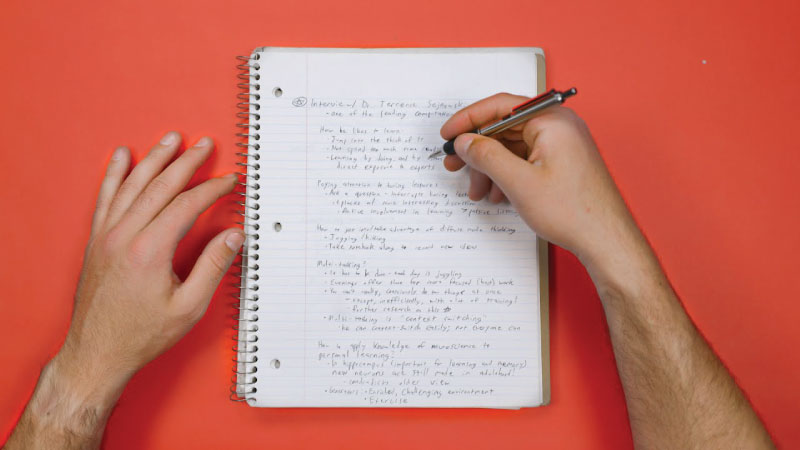 Interview w/ Dr. Terrence Sejnowski
- one of the leading computation
How he likes to learn:
- Jump into the thick of it
- Not spend too much time
- Learning by doing, and by
direct exposure to experts
Paying attention to boring lectures?
- Ask a question - interrupts boring lecture
- Active involvement in learning
How to take advantage of diffuse mode thinking
- Jogging/hiking
- Take notebook along to record new ideas
Multi-tasking?
- Has to be done - each day is juggling
- Evenings offer time for more focused work
- You can't really consciously do two things at once
- except, inefficiently, with a lot of training?
further research on this
- Multi-tasking is "context switching"
- he can context-switch easily, not everyone can
How to apply knowledge of neuroscience to
personal learning?
- In hippocampus (important for learning and memory)
new neurons are still made in adulthood
- contradicts older view
- enriched, challenging environment
- Exercise